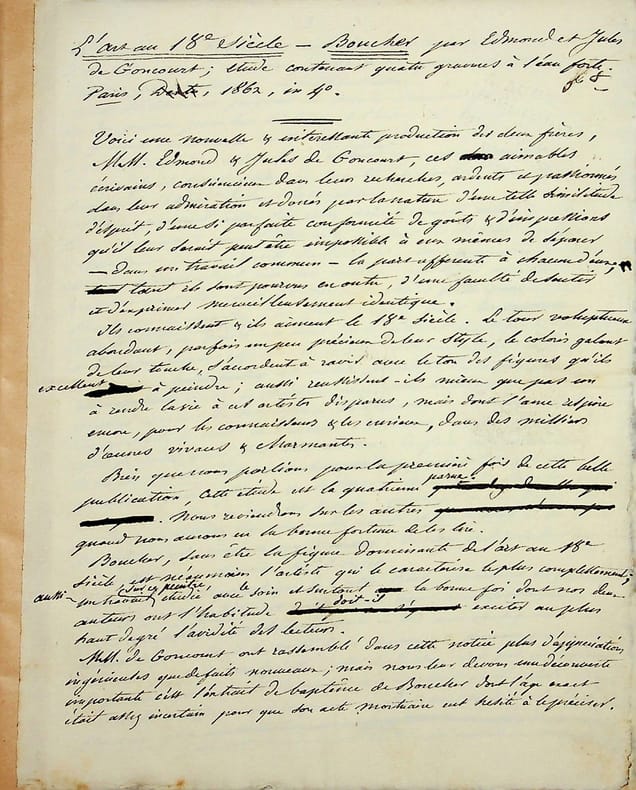 L'art au 18e Siècle — Boucher par Edmond et Jules
de Goncourt; étude contenant quatre gravures à l'eau forte
Paris, Dentu, 1862, in 4o.
Voici une nouvelle & intéressante production des deux frères,
M.M. Edmond & Jules de Goncourt, ces aimables
écrivains, consciencieux dans leurs recherches, ardents et passionnés
dans leur admiration et doués par la nature d'une telle similitude
d'esprit, d'une si parfaite conformité de goûts & d'impressions
qu'il leur serait peut être impossible à eux mêmes de séparer
— dans un travail commun — la part afférente à chacun d'eux,
tant ils sont pourvus en outre, d'une faculté de sentir
et d'exprimer merveilleusement identique.
Ils connaissent & ils aiment le 18e Siècle. Le tour voluptueux
abordant, parfois un peu précieux de leur style, le coloris galant
de leur touche, s'accordent à ravir avec le ton des figures qu'ils
excellent à peindre; aussi réussissent-ils mieux que pas un
à rendre la vie à ces artistes disparus, mais dont l'âme respire
encore, pour les connaisseurs & les curieux, dans des milliers
d'œuvres vivaces & charmantes.
Bien que nous parlions pour la première fois de cette belle
publication, cette étude est la quatrième parue
. Nous reviendrons sur les autres
quand nous aurons eu la bonne fortune de les lire.
Boucher, sans être la figure dominante de l'art au 18e
Siècle, est néanmoins l'artiste qui le caractérise le plus complètement;
aussi un travail sur ce peintre, étudié avec le soin et surtout la bonne foi dont nos deux
auteurs ont l'habitude doit-il exciter au plus
haut degré l'avidité des lecteurs.
M.M. de Goncourt ont rassemblé dans cette notice plus d'appréciations
ingénieuses que de faits nouveaux; mais nous leur devons une découverte
importante c'est l'extrait de baptême de Boucher dont l'âge exact
était assez incertain pour que son acte mortuaire eut hésité à le préciser.